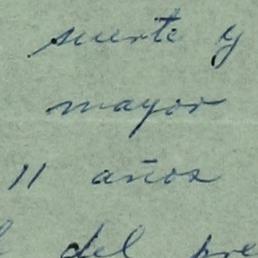 suerte y
mayor
11 años
del pre